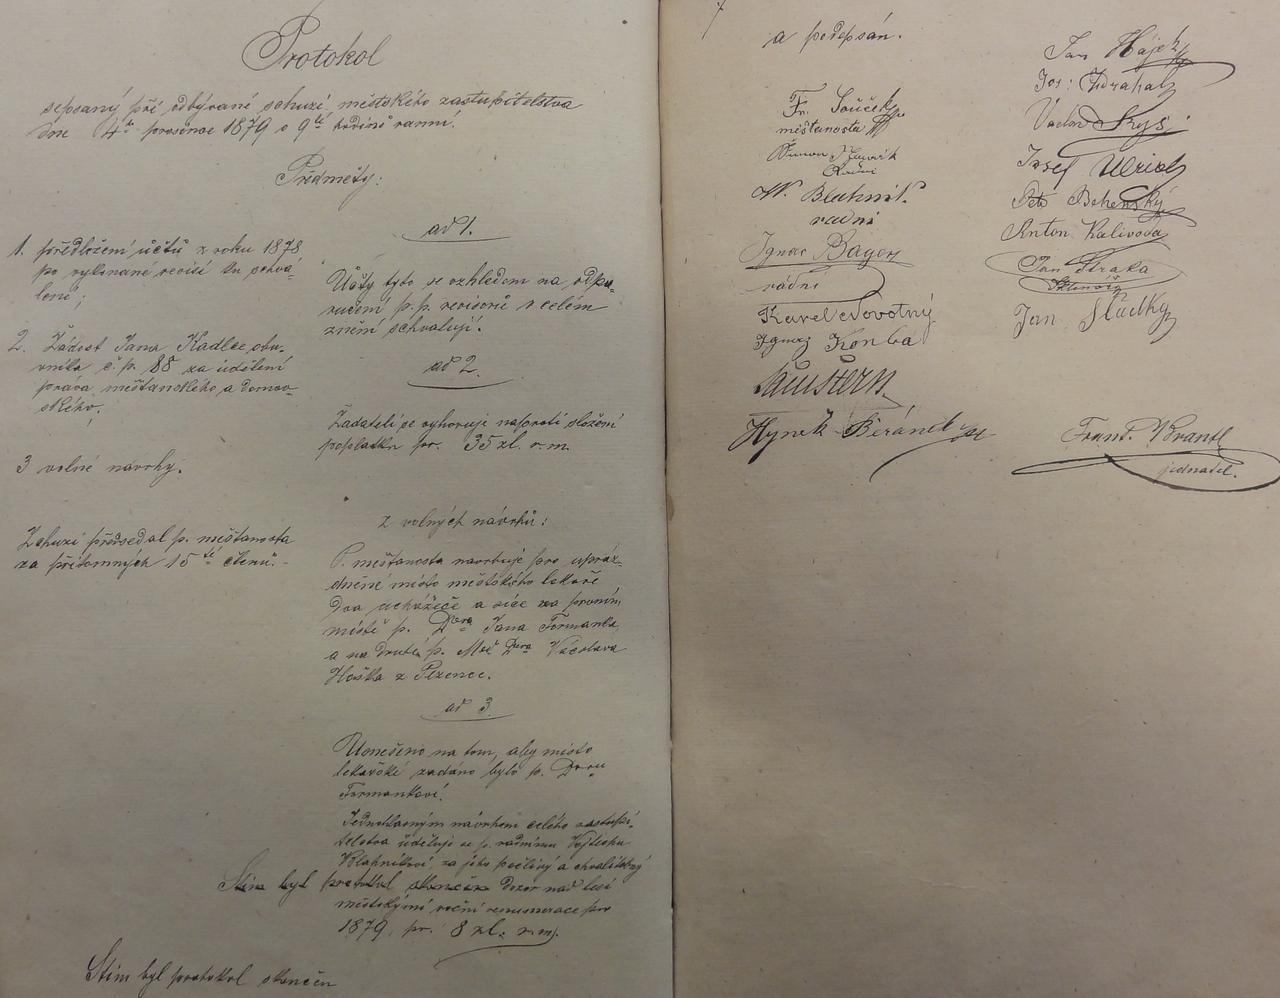 Protokol
sepsaný při odbývané schůzi městského zastupitelstva
dne 4ho prosince 1879 o 9té hodině ranní.
Předměty:
1. předložení účtů z roku 1878
po vykonané revisi ku schvá-
lení;
2. Žádost Jana Kadlec obu-
vníka č. p. 88 za udělení
práva měšťanského a domov-
ského.
3 volné návrhy.
Schůzi předsedal p. měšťanosta
za přítomných 15ti členů.
ad 1.
Účty tyto se vzhledem na odpo-
ručení p. p. revisorů v celém
znění schvalují.
ad 2.
Žadateli se vyhovuje naproti složení
poplatku pr. 35 zl. r. m.
z volných návrhů:
P. měšťanosta navrhuje pro upráz-
dněné místo městského lékaře
dva uchážeče a sice na prvním
místě p. Dra Jana Formánka
a na druhé p. Med Dra Václava
Hoška z Plzence.
ad 3
Usnešeno na tom, aby místo
lékařské zadáno bylo p. Dru
Formankovi.
Jednohlasným návrhem celého zastupi-
telstva uděluje se p. radnímu Vojtěchu
Blahníkovi, za jeho pečlivý a chvalitebný
Stim byl protokol skončen dozor nad lesí
městskými roční remunerace pro
1879 pr. 8 zl. r. m.
Stim byl protokol skončen
a podepsán.
Fr. Souček
měšťanosta
Šimon
Radní
W. Blahnik.
radní
Ignac Bayer
rádní
Karel Novotný
Ignaz
Hynek Beránek
Jan Hájek
Jos: Zdrahal
Václav
Josef Ulrich
Petr
Anton Kalivoda
Jan Straka
Jan Sladký
Frant. Brantl
jednatel.